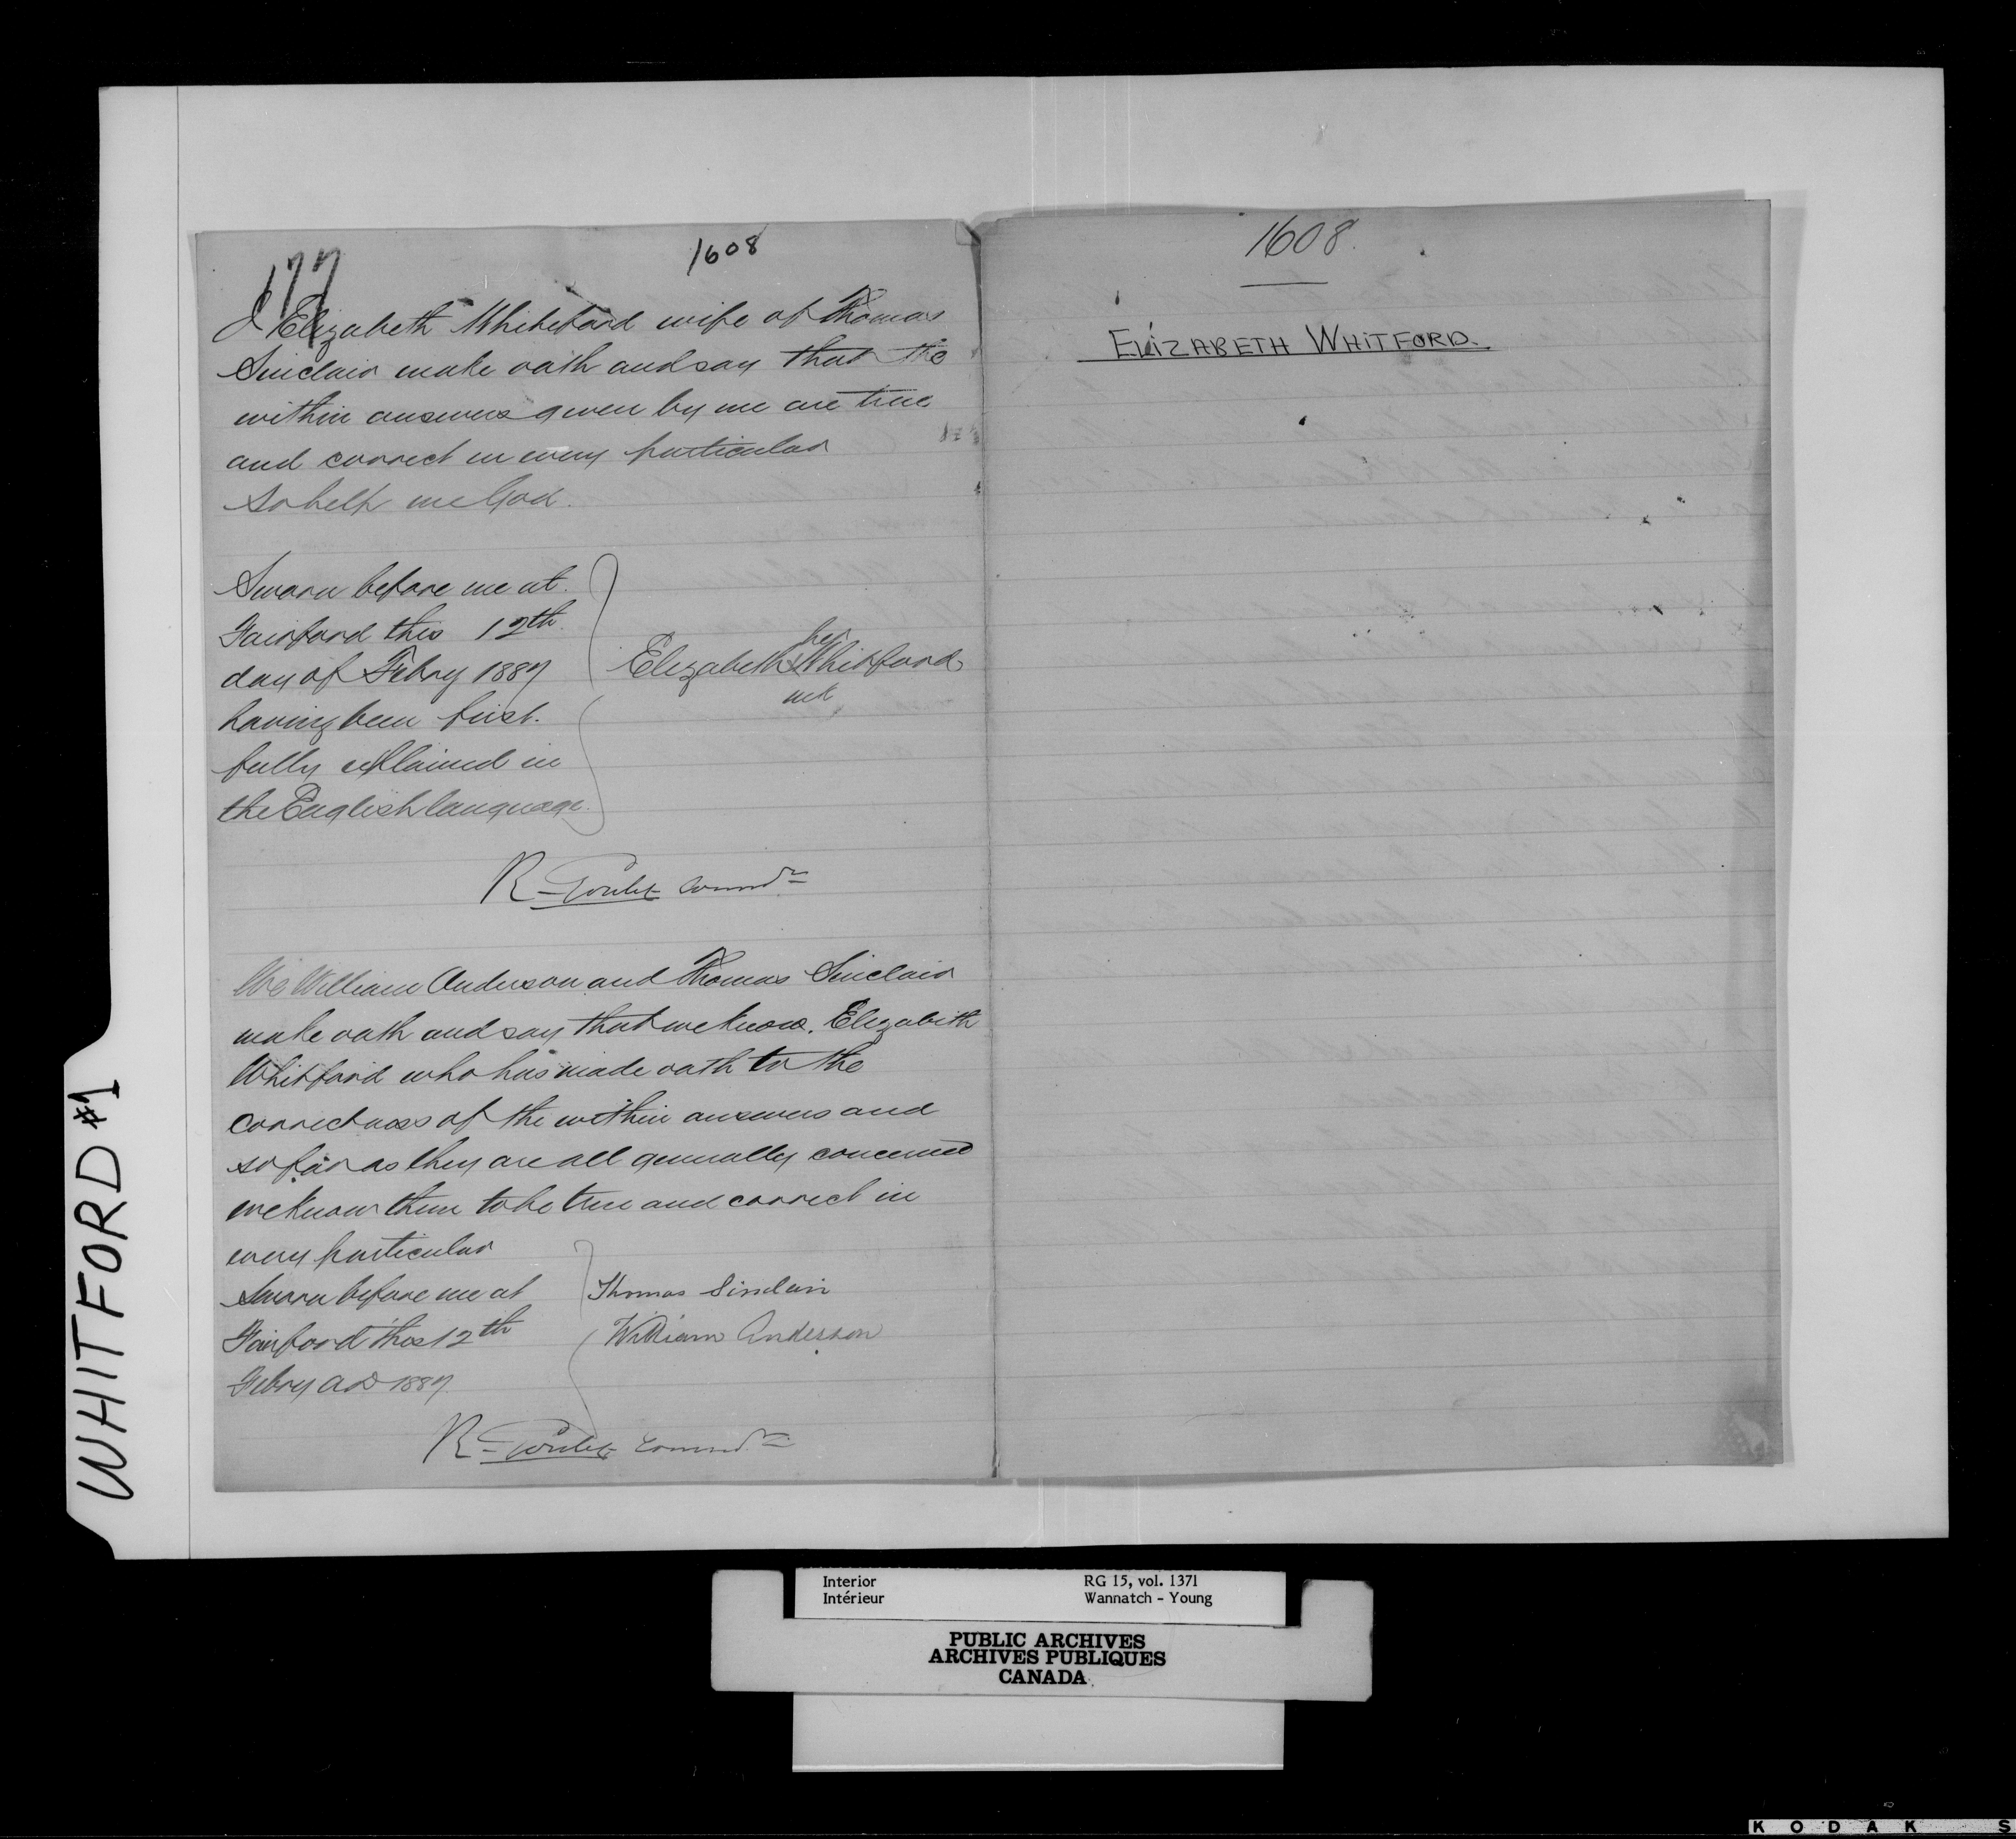 177
1608
I Elizabeth Whiteford wife of Thomas
Sinclair make oath and say that the
within answers given by me are true
and correct in every particular
So help me God.
Sworn before me at
Fairford this 12th
day of Febry 1887
having been first
fully explained in
the English language.
her
Elizabeth X Whitford
mk
R. Goulet Commr
We William Anderson and Thomas Sinclair
make oath and say that we know Elizabeth
Whitford who has made oath to the
correctness of the within answers and
so far as they are all generally concerned
we know them to be true and correct in
every particular
Sworn before me at
Fairford this 12th
Febry AD 1887
Thomas Sinclair
William Anderson
R. Goulet Commr
1608.
ELIZABETH WHITFORD.
WHITFORD #1
Interior RG 15, vol. 1371
Intérieur Wannatch - Young
PUBLIC ARCHIVES
ARCHIVES PUBLIQUES
CANADA
KODAK S